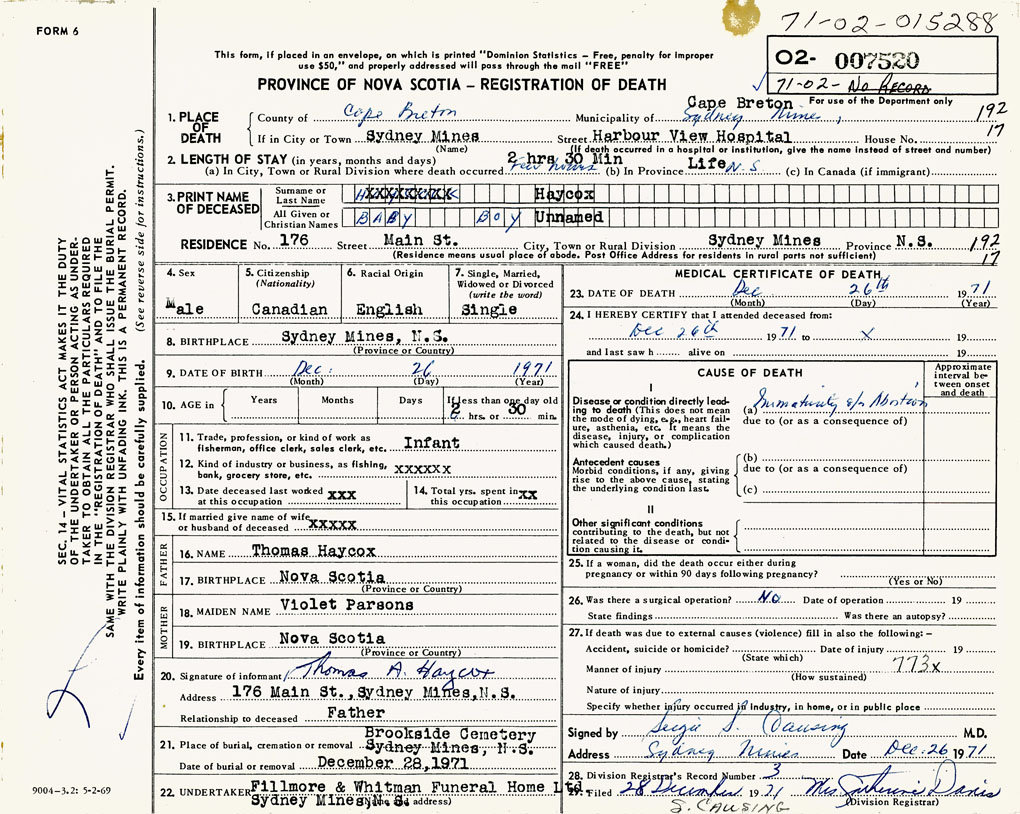 71-02-015288
FORM 6
This form, if placed in an envelope, on which is printed "Dominion Statistics – Free, penalty for improper
use $50," and properly addressed will pass through the mail "FREE"
O2- 007520
71-02- No Record
For use of the Department only
PROVINCE OF NOVA SCOTIA – REGISTRATION OF DEATH
1. PLACE OF DEATH
County of Cape Breton Municipality of Cape Breton Sydney Mines, 192
If in City or Town Sydney Mines Street Harbour View Hospital House No. 17
(Name) (If death occurred in a hospital or institution, give the name instead of street and number)
2. LENGTH OF STAY (in years, months and days)
(a) In City, Town or Rural Division where death occurred 2 hrs 30 Min Few hours (b) In Province Life N.S (c) In Canada (if immigrant)
3. PRINT NAME OF DECEASED
Surname or Last Name XXXXXXXXX Haycox
All Given or Christian Names BABY BOY Unnamed
RESIDENCE No. 176 Street Main St. City, Town or Rural Division Sydney Mines Province N.S. 192
(Residence means usual place of abode. Post Office Address for residents in rural parts not sufficient) 17
SEC. 14 – VITAL STATISTICS ACT MAKES IT THE DUTY
OF THE UNDERTAKER OR PERSON ACTING AS UNDER-
TAKER TO OBTAIN ALL THE PARTICULARS REQUIRED
IN THE "REGISTRATION OF DEATH" AND TO FILE THE
SAME WITH THE DIVISION REGISTRAR WHO SHALL ISSUE THE BURIAL PERMIT.
WRITE PLAINLY WITH UNFADING INK. THIS IS A PERMANENT RECORD.
Every item of information should be carefully supplied. (See reverse side for instructions.)
4. Sex
Male
5. Citizenship
(Nationality)
Canadian
6. Racial Origin
English
7. Single, Married,
Widowed or Divorced
(write the word)
Single
8. BIRTHPLACE Sydney Mines, N.S.
(Province or Country)
9. DATE OF BIRTH Dec. 26 1971
(Month) (Day) (Year)
10. AGE in Years Months Days If less than one day old
2 hrs. or 30 min.
OCCUPATION
11. Trade, profession, or kind of work as
fisherman, office clerk, sales clerk, etc. Infant
12. Kind of industry or business, as fishing,
bank, grocery store, etc. XXXXXX
13. Date deceased last worked
at this occupation XXX
14. Total yrs. spent in
this occupation XX
15. If married give name of wife
or husband of deceased XXXXX
FATHER
16. NAME Thomas Haycox
17. BIRTHPLACE Nova Scotia
(Province or Country)
MOTHER
18. MAIDEN NAME Violet Parsons
19. BIRTHPLACE Nova Scotia
(Province or Country)
20. Signature of informant Thomas A. Haycox
Address 176 Main St., Sydney Mines, N.S.
Relationship to deceased Father
21. Place of burial, cremation or removal Brookside Cemetery
Sydney Mines, N.S.
Date of burial or removal December 28, 1971
22. UNDERTAKER Fillmore & Whitman Funeral Home Ltd.
Sydney Mines, N.S. (Name and address)
9004-3.2: 5-2-69
MEDICAL CERTIFICATE OF DEATH
23. DATE OF DEATH Dec 26th 1971
(Month) (Day) (Year)
24. I HEREBY CERTIFY that I attended deceased from:
Dec 26th 1971 to X 19
and last saw h alive on 19
CAUSE OF DEATH
Approximate
interval be-
tween onset
and death
I
Disease or condition directly lead-
ing to death (This does not mean
the mode of dying, e.g., heart fail-
ure, asthenia, etc. It means the
disease, injury, or complication
which caused death.)
(a) Immaturity c/o Abortion
due to (or as a consequence of)
Antecedent causes
Morbid conditions, if any, giving
rise to the above cause, stating
the underlying condition last.
(b)
due to (or as a consequence of)
(c)
II
Other significant conditions
contributing to the death, but not
related to the disease or condi-
tion causing it.
25. If a woman, did the death occur either during
pregnancy or within 90 days following pregnancy?
(Yes or No)
26. Was there a surgical operation? No Date of operation 19
State findings Was there an autopsy?
27. If death was due to external causes (violence) fill in also the following: –
Accident, suicide or homicide? Date of injury 19
(State which)
Manner of injury 773x
(How sustained)
Nature of injury
Specify whether injury occurred in industry, in home, or in public place
Signed by S. Causing M.D.
Address Sydney Mines Date Dec. 26 1971
28. Division Registrar's Record Number 3
29. Filed 28 December 1971 Mrs Catherine Davis
(Division Registrar)
S. CAUSING